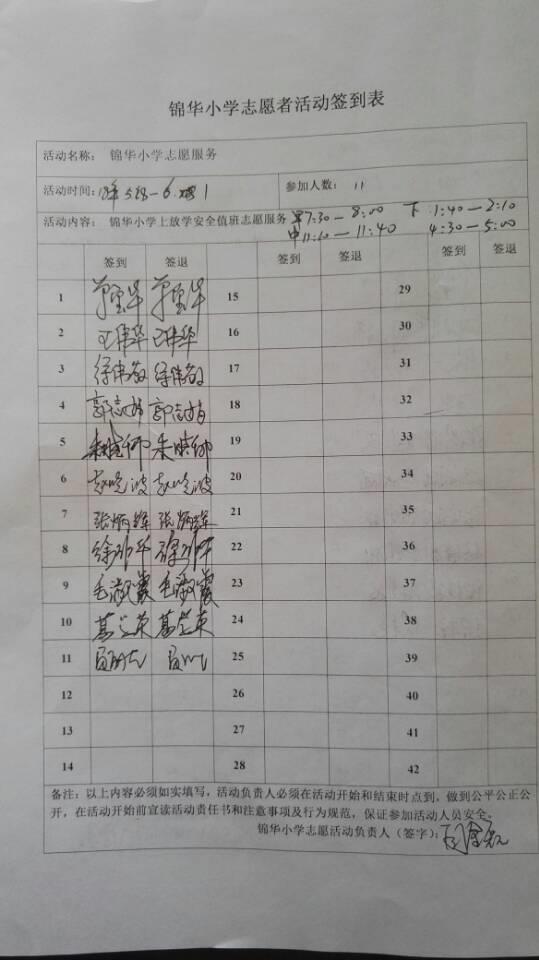 锦华小学志愿者活动签到表
活动名称： 锦华小学志愿服务
活动时间： 参加人数： 11
活动内容： 锦华小学上放学安全值班志愿服务 早7:30—8:00 下1:40—2:10
中11:10—11:40 4:30—5:00
签到 签退 签到 签退 签到 签退
1 15 29
2 王伟华 王伟华 16 30
3 徐伟敏 徐伟敏 17 31
4 郭志娟 郭志娟 18 32
5 朱晓卿 朱晓卿 19 33
6 赵晓波 赵晓波 20 34
7 张炳辉 张炳辉 21 35
8 22 36
9 毛淑霞 毛淑霞 23 37
10 葛兰英 葛兰英 24 38
11 25 39
12 26 40
13 27 41
14 28 42
备注：以上内容必须如实填写，活动负责人必须在活动开始和结束时点到，做到公平公正公
开，在活动开始前宣读活动责任书和注意事项及行为规范，保证参加活动人员安全。
锦华小学志愿活动负责人（签字）：